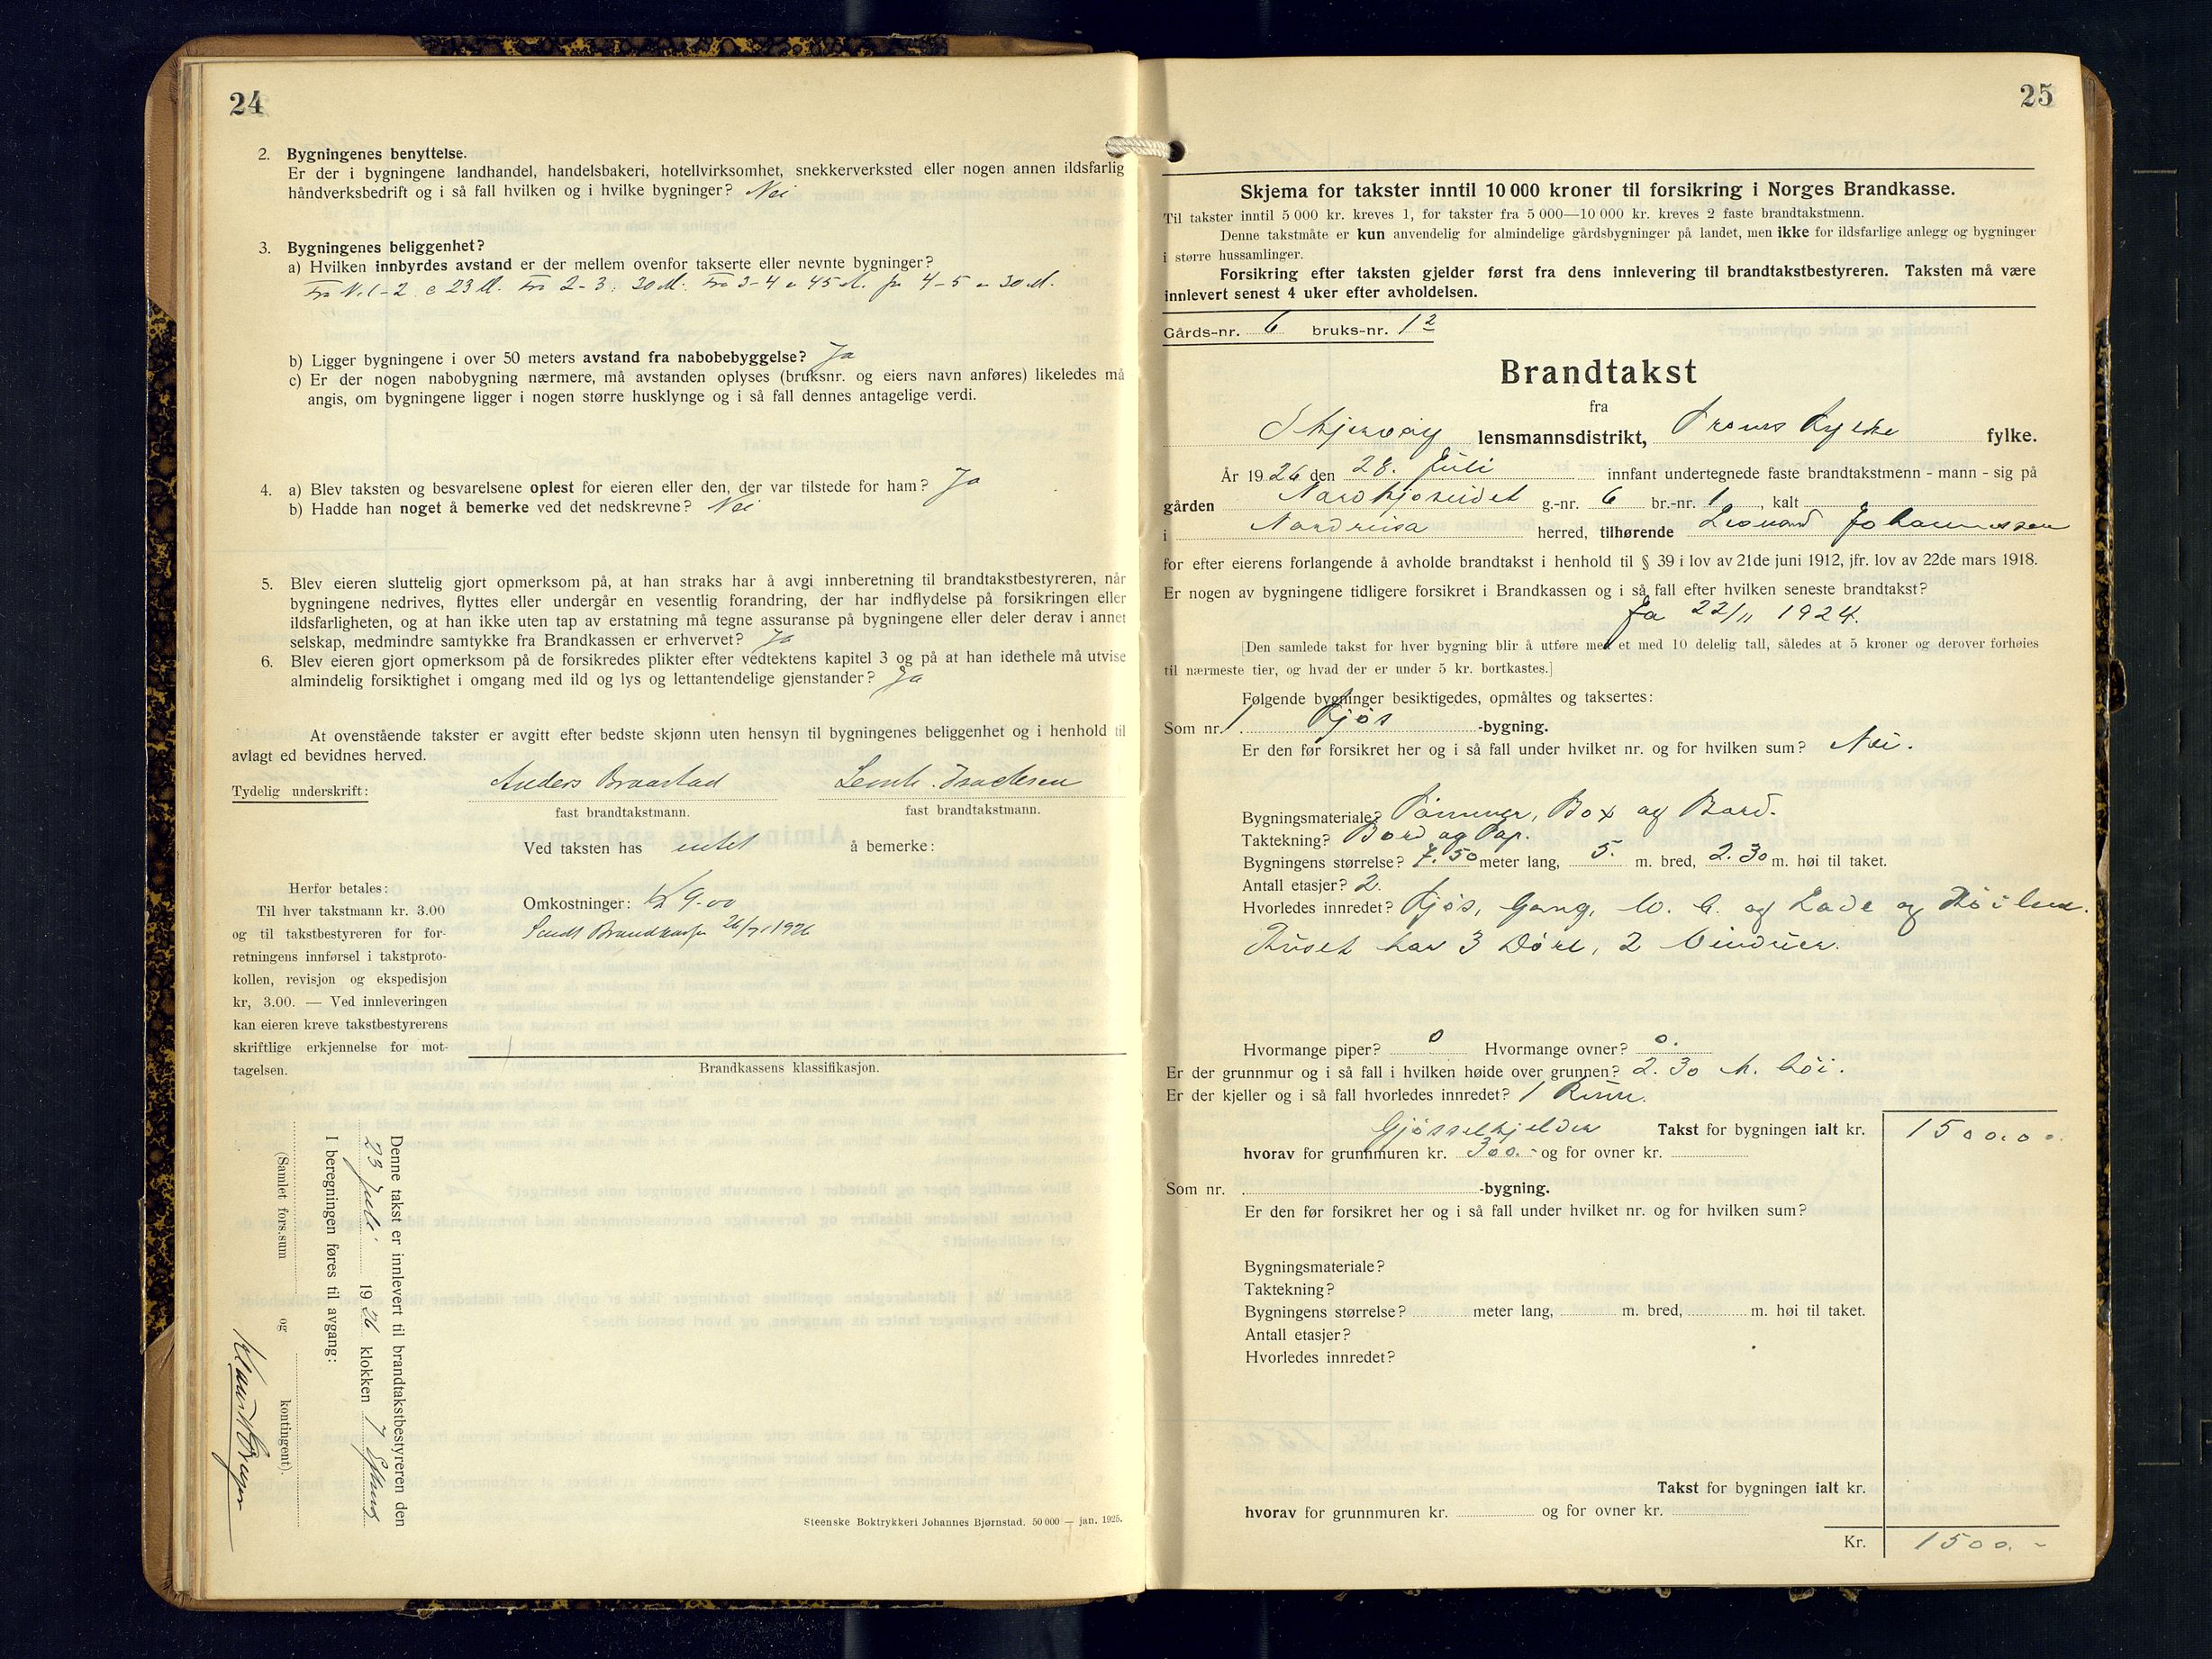 24
2. Bygningenes benyttelse.
Er der i bygningene landhandel, handelsbakeri, hotellvirksomhet, snekkerverksted eller nogen annen ildsfarlig
håndverksbedrift og i så fall hvilken og i hvilke bygninger? Nei
3. Bygningenes beliggenhet?
a) Hvilken innbyrdes avstand er der mellem ovenfor takserte eller nevnte bygninger?
Fra N. 1-2 e 23 M. Fra 2-3. 30 M. Fra 3-4 e 45 M. fra 4-5 e 30 M.
b) Ligger bygningene i over 50 meters avstand fra nabobebyggelse? Ja
c) Er der nogen nabobygning nærmere, må avstanden oplyses (bruksnr. og eiers navn anføres) likeledes må
angis, om bygningene ligger i nogen større husklynge og i så fall dennes antagelige verdi.
4. a) Blev taksten og besvarelsene oplest for eieren eller den, der var tilstede for ham? Ja
b) Hadde han noget å bemerke ved det nedskrevne? Nei
5. Blev eieren sluttelig gjort opmerksom på, at han straks har å avgi innberetning til brandtakstbestyreren, når
bygningene nedrives, flyttes eller undergår en vesentlig forandring, der har indflydelse på forsikringen eller
ildsfarligheten, og at han ikke uten tap av erstatning må tegne assuranse på bygningene eller deler derav i annet
selskap, medmindre samtykke fra Brandkassen er erhvervet? Ja
6. Blev eieren gjort opmerksom på de forsikredes plikter efter vedtektens kapitel 3 og på at han idethele må utvise
almindelig forsiktighet i omgang med ild og lys og lettantendelige gjenstander? Ja
At ovenstående takster er avgitt efter bedste skjønn uten hensyn til bygningenes beliggenhet og i henhold til
avlagt ed bevidnes herved.
Tydelig underskrift: Anders Braastad
fast brandtakstmann. fast brandtakstmann.
Ved taksten has intet å bemerke:
Herfor betales:
Til hver takstmann kr. 3.00
og til takstbestyreren for for-
retningens innførsel i takstproto-
kollen, revisjon og ekspedisjon
kr, 3.00. — Ved innleveringen
kan eieren kreve takstbestyrerens
skriftlige erkjennelse for mot-
tagelsen.
Omkostninger: Kr 9.00
Sendt Brandkassen 26/7 1926
Brandkassens klassifikasjon.
Denne takst er innlevert til brandtakstbestyreren den
23 Juli 1926 klokken 7
I beregningen føres til avgang:
(Samlet fors.sum og kontingent).
Steenske Boktrykkeri Johannes Bjørnstad. 50 000 — jan. 1925.
25
Skjema for takster inntil 10 000 kroner til forsikring i Norges Brandkasse.
Til takster inntil 5 000 kr. kreves 1, for takster fra 5 000—10 000 kr. kreves 2 faste brandtakstmenn.
Denne takstmåte er kun anvendelig for almindelige gårdsbygninger på landet, men ikke for ildsfarlige anlegg og bygninger
i større hussamlinger.
Forsikring efter taksten gjelder først fra dens innlevering til brandtakstbestyreren. Taksten må være
innlevert senest 4 uker efter avholdelsen.
Gårds-nr. 6 bruks-nr. 12
Brandtakst
fra
Skjervøy lensmannsdistrikt, Troms Fylke fylke.
År 1926 den 28. Juli innfant undertegnede faste brandtakstmenn - mann - sig på
gården Nordkjoseidet g.-nr. 6 br.-nr. 1, kalt
i Nordreisa herred, tilhørende Leonard Johannessen
for efter eierens forlangende å avholde brandtakst i henhold til § 39 i lov av 21de juni 1912, jfr. lov av 22de mars 1918.
Er nogen av bygningene tidligere forsikret i Brandkassen og i så fall efter hvilken seneste brandtakst?
Ja 22/11 1924.
[Den samlede takst for hver bygning blir å utføre med et med 10 delelig tall, således at 5 kroner og derover forhøies
til nærmeste tier, og hvad der er under 5 kr. bortkastes.]
Følgende bygninger besiktigedes, opmåltes og taksertes:
Som nr. 1 Fjøs -bygning.
Er den før forsikret her og i så fall under hvilket nr. og for hvilken sum? Nei.
Bygningsmateriale? Tømmer, Box og Bord.
Taktekning? Bord og Pap.
Bygningens størrelse? 7.50 meter lang, 5. m. bred, 2.30 m. høi til taket.
Antall etasjer? 2.
Hvorledes innredet? Fjøs, Gang, W. C. og Lade og
Huset har 3 Døre, 2 Vinduer.
Hvormange piper? 0 Hvormange ovner? 0.
Er der grunnmur og i så fall i hvilken høide over grunnen? 2.30 M. høi.
Er der kjeller og i så fall hvorledes innredet? 1 Rum.
Gjøsselkjelder Takst for bygningen ialt kr. 1500.00.
hvorav for grunnmuren kr. 300.- og for ovner kr.
Som nr. -bygning.
Er den før forsikret her og i så fall under hvilket nr. og for hvilken sum?
Bygningsmateriale?
Taktekning?
Bygningens størrelse? meter lang, m. bred, m. høi til taket.
Antall etasjer?
Hvorledes innredet?
Takst for bygningen ialt kr.
hvorav for grunnmuren kr. og for ovner kr.
Kr. 1500.-